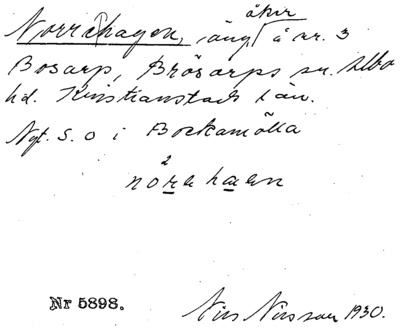 åker
Norrehagen, äng, å nr. 3
Bosarp, Brösarps sn. Albo
hd. Kristianstads län.
Ngt. S. O i Bockamölla
norehagen
Nr 5898.
Nils Nilsson 1930.